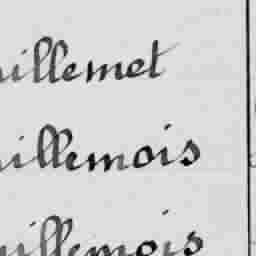 uillemet
uillemois
uillemois